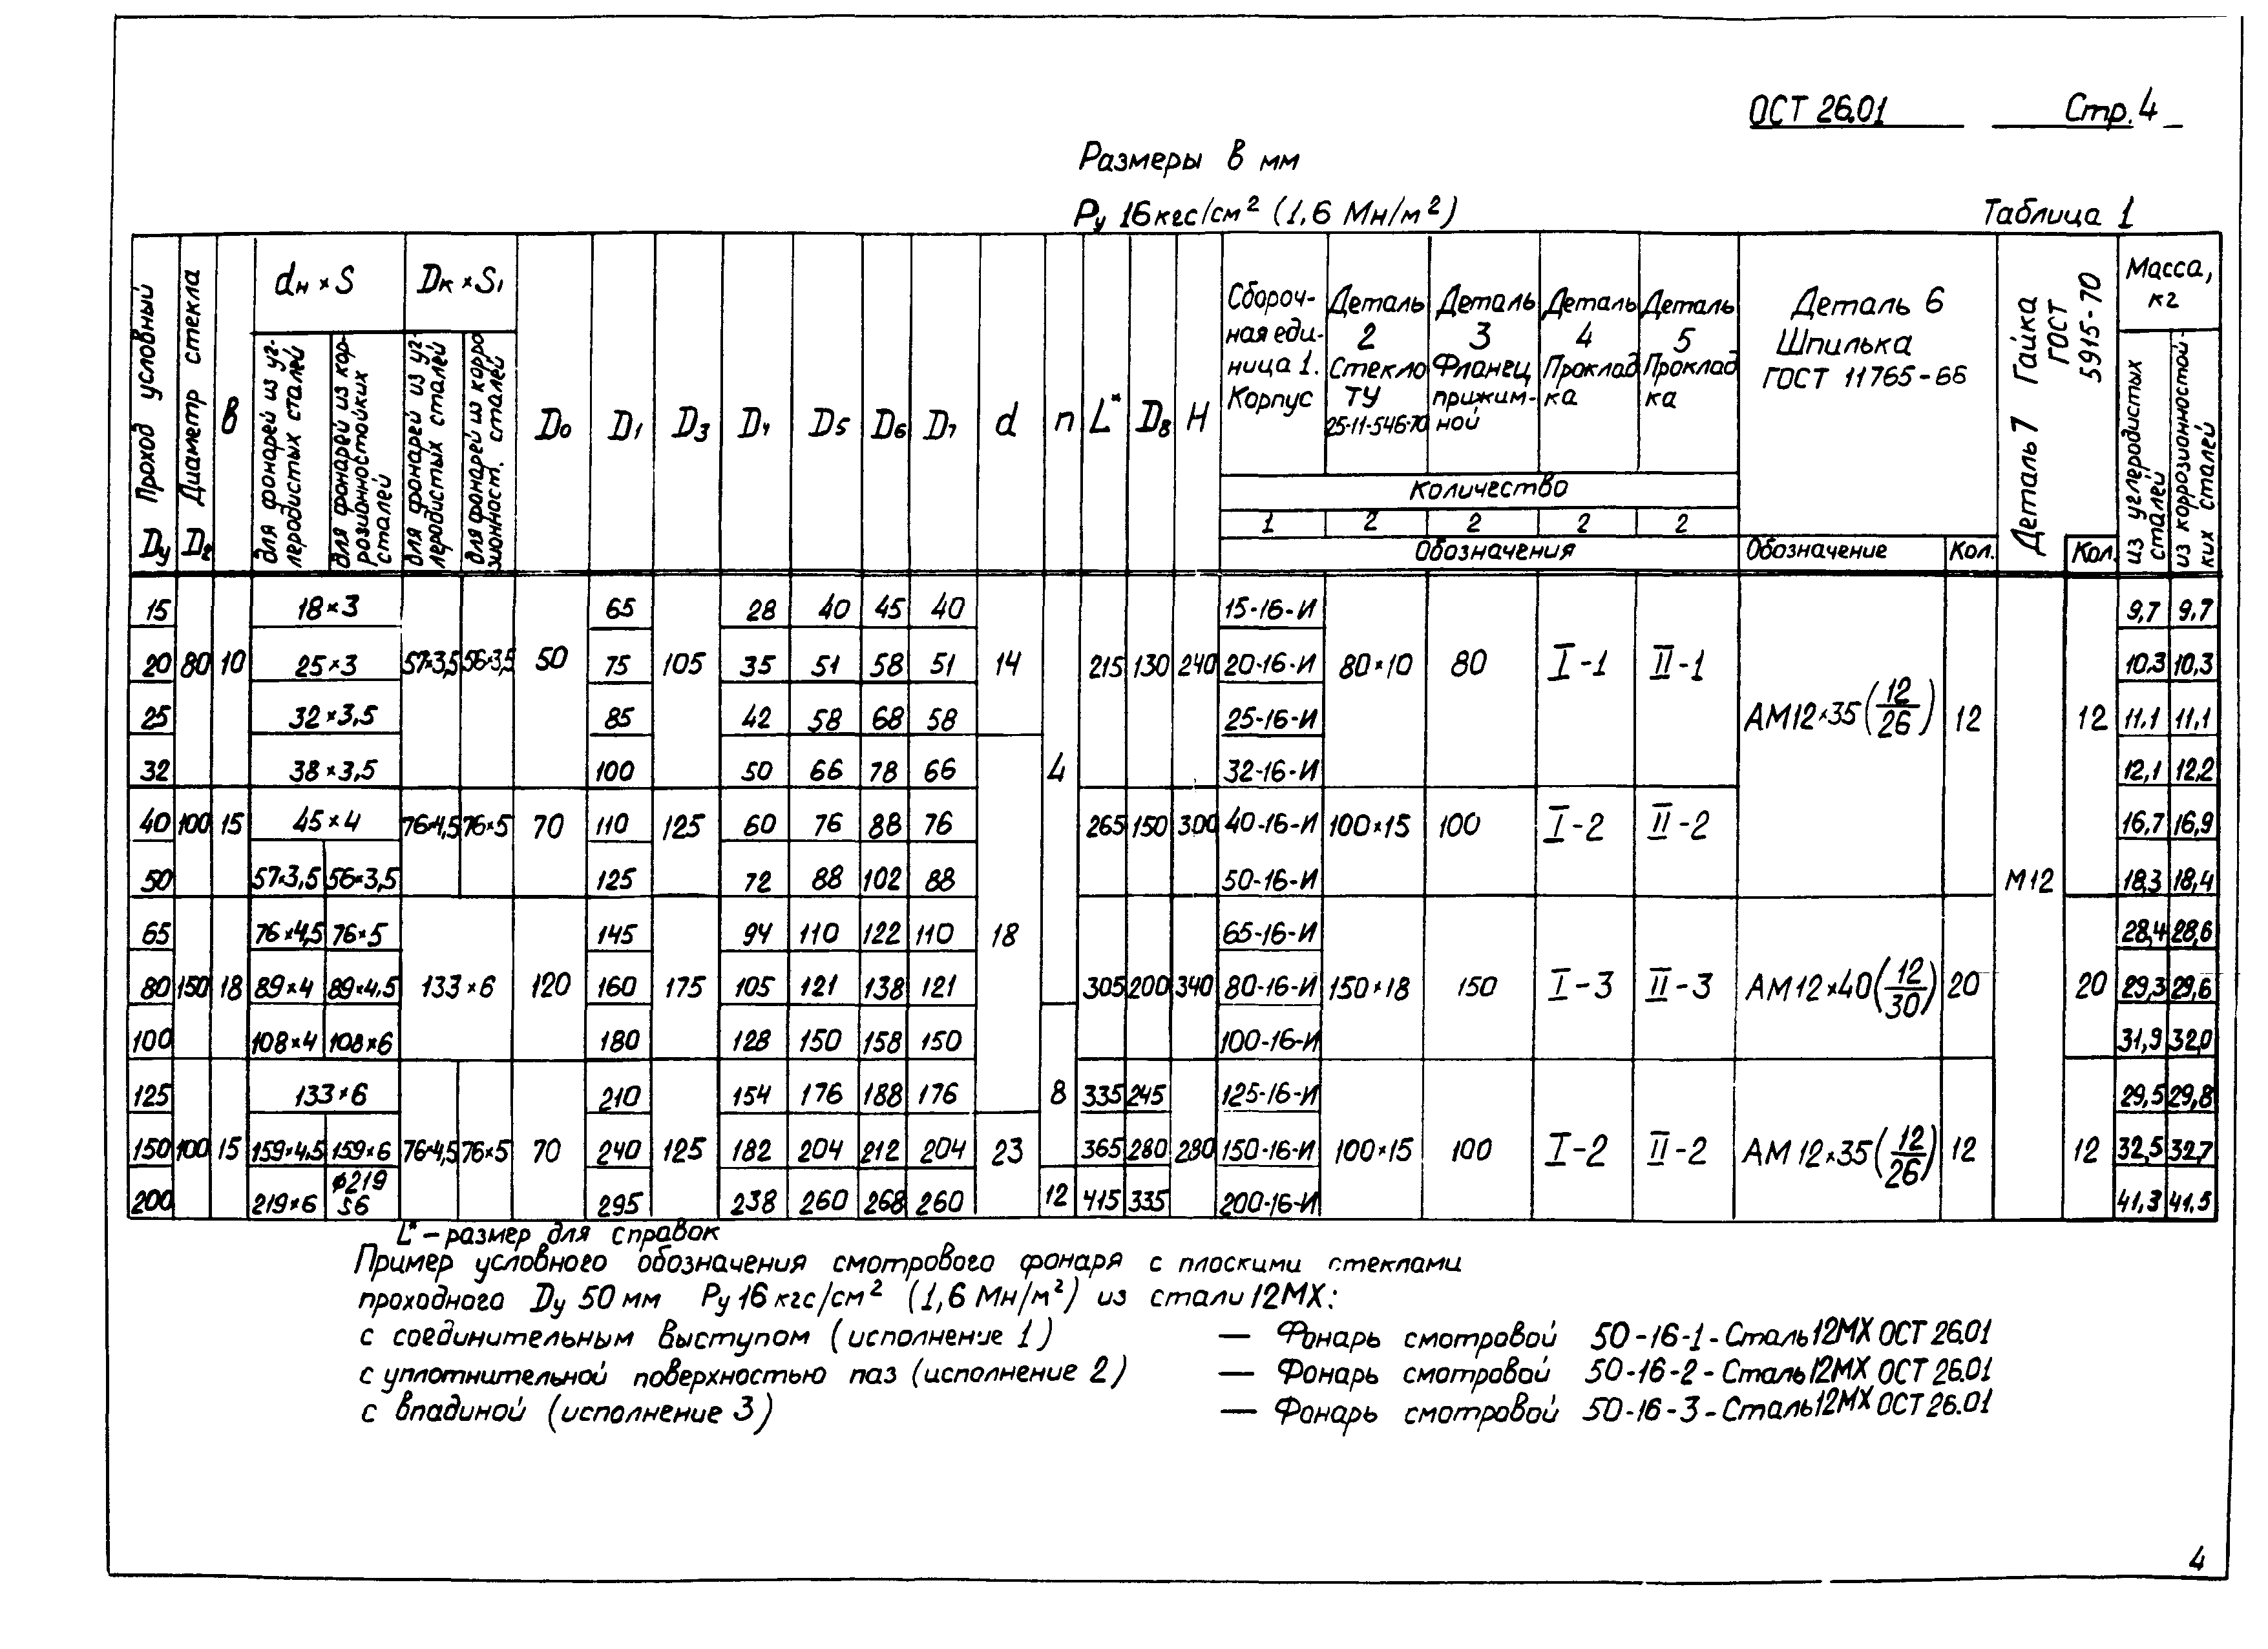 ОСТ 26.01 Стр. 4
Размеры в мм
Ру 16 кгс/см² (1,6 Мн/м²) Таблица 1
Проход условный Dу
Диаметр стекла D₂
в
dн × S
для фонарей из уг-
леродистых сталей
для фонарей из кор-
розионностойких
сталей
Dк × S₁
для фонарей из уг-
леродистых сталей
для фонарей из корро
зионност. сталей
D₀ D₁ D₃ D₄ D₅ D₆ D₇ d n L* D₈ H
Сбороч-
ная еди-
ница 1.
Корпус
Деталь
2
Стекло
ТУ
25-11-546-70
Деталь
3
Фланец
прижим-
ной
Деталь
4
Проклад
ка
Деталь
5
Проклад
ка
Количество
1 2 2 2 2
Обозначения
Деталь 6
Шпилька
ГОСТ 11765-66
Обозначение Кол.
Деталь 7 Гайка
ГОСТ
5915-70
Кол.
Масса,
кг
из углеродистых
сталей
из коррозионностой
ких сталей
15 18×3 65 28 40 45 40 15-16-И 9,7 9,7
20 80 10 25×3 57×3,5 56×3,5 50 75 105 35 51 58 51 14 215 130 240 20-16-И 80×10 80 I-1 II-1 10,3 10,3
25 32×3,5 85 42 58 68 58 25-16-И АМ12×35(12/26) 12 12 11,1 11,1
32 38×3,5 100 50 66 78 66 4 32-16-И 12,1 12,2
40 100 15 45×4 76×4,5 76×5 70 110 125 60 76 88 76 265 150 300 40-16-И 100×15 100 I-2 II-2 16,7 16,9
50 57×3,5 56×3,5 125 72 88 102 88 50-16-И М12 18,3 18,4
65 76×4,5 76×5 145 94 110 122 110 18 65-16-И 28,4 28,6
80 150 18 89×4 89×4,5 133×6 120 160 175 105 121 138 121 305 200 340 80-16-И 150×18 150 I-3 II-3 АМ12×40(12/30) 20 20 29,3 29,6
100 108×4 108×6 180 128 150 158 150 100-16-И 31,9 32,0
125 133×6 210 154 176 188 176 8 335 245 125-16-И 29,5 29,8
150 100 15 159×4,5 159×6 76×4,5 76×5 70 240 125 182 204 212 204 23 365 280 280 150-16-И 100×15 100 I-2 II-2 АМ12×35(12/26) 12 12 32,5 32,7
200 219×6 ⌀219 S6 295 238 260 268 260 12 415 335 200-16-И 41,3 41,5
L* – размер для справок
Пример условного обозначения смотрового фонаря с плоскими стеклами
проходного Dу 50 мм Ру 16 кгс/см² (1,6 Мн/м²) из стали 12МХ:
с соединительным выступом (исполнение 1) — Фонарь смотровой 50-16-1-Сталь 12МХ ОСТ 26.01
с уплотнительной поверхностью паз (исполнение 2) — Фонарь смотровой 50-16-2-Сталь 12МХ ОСТ 26.01
с впадиной (исполнение 3) — Фонарь смотровой 50-16-3-Сталь 12МХ ОСТ 26.01
4